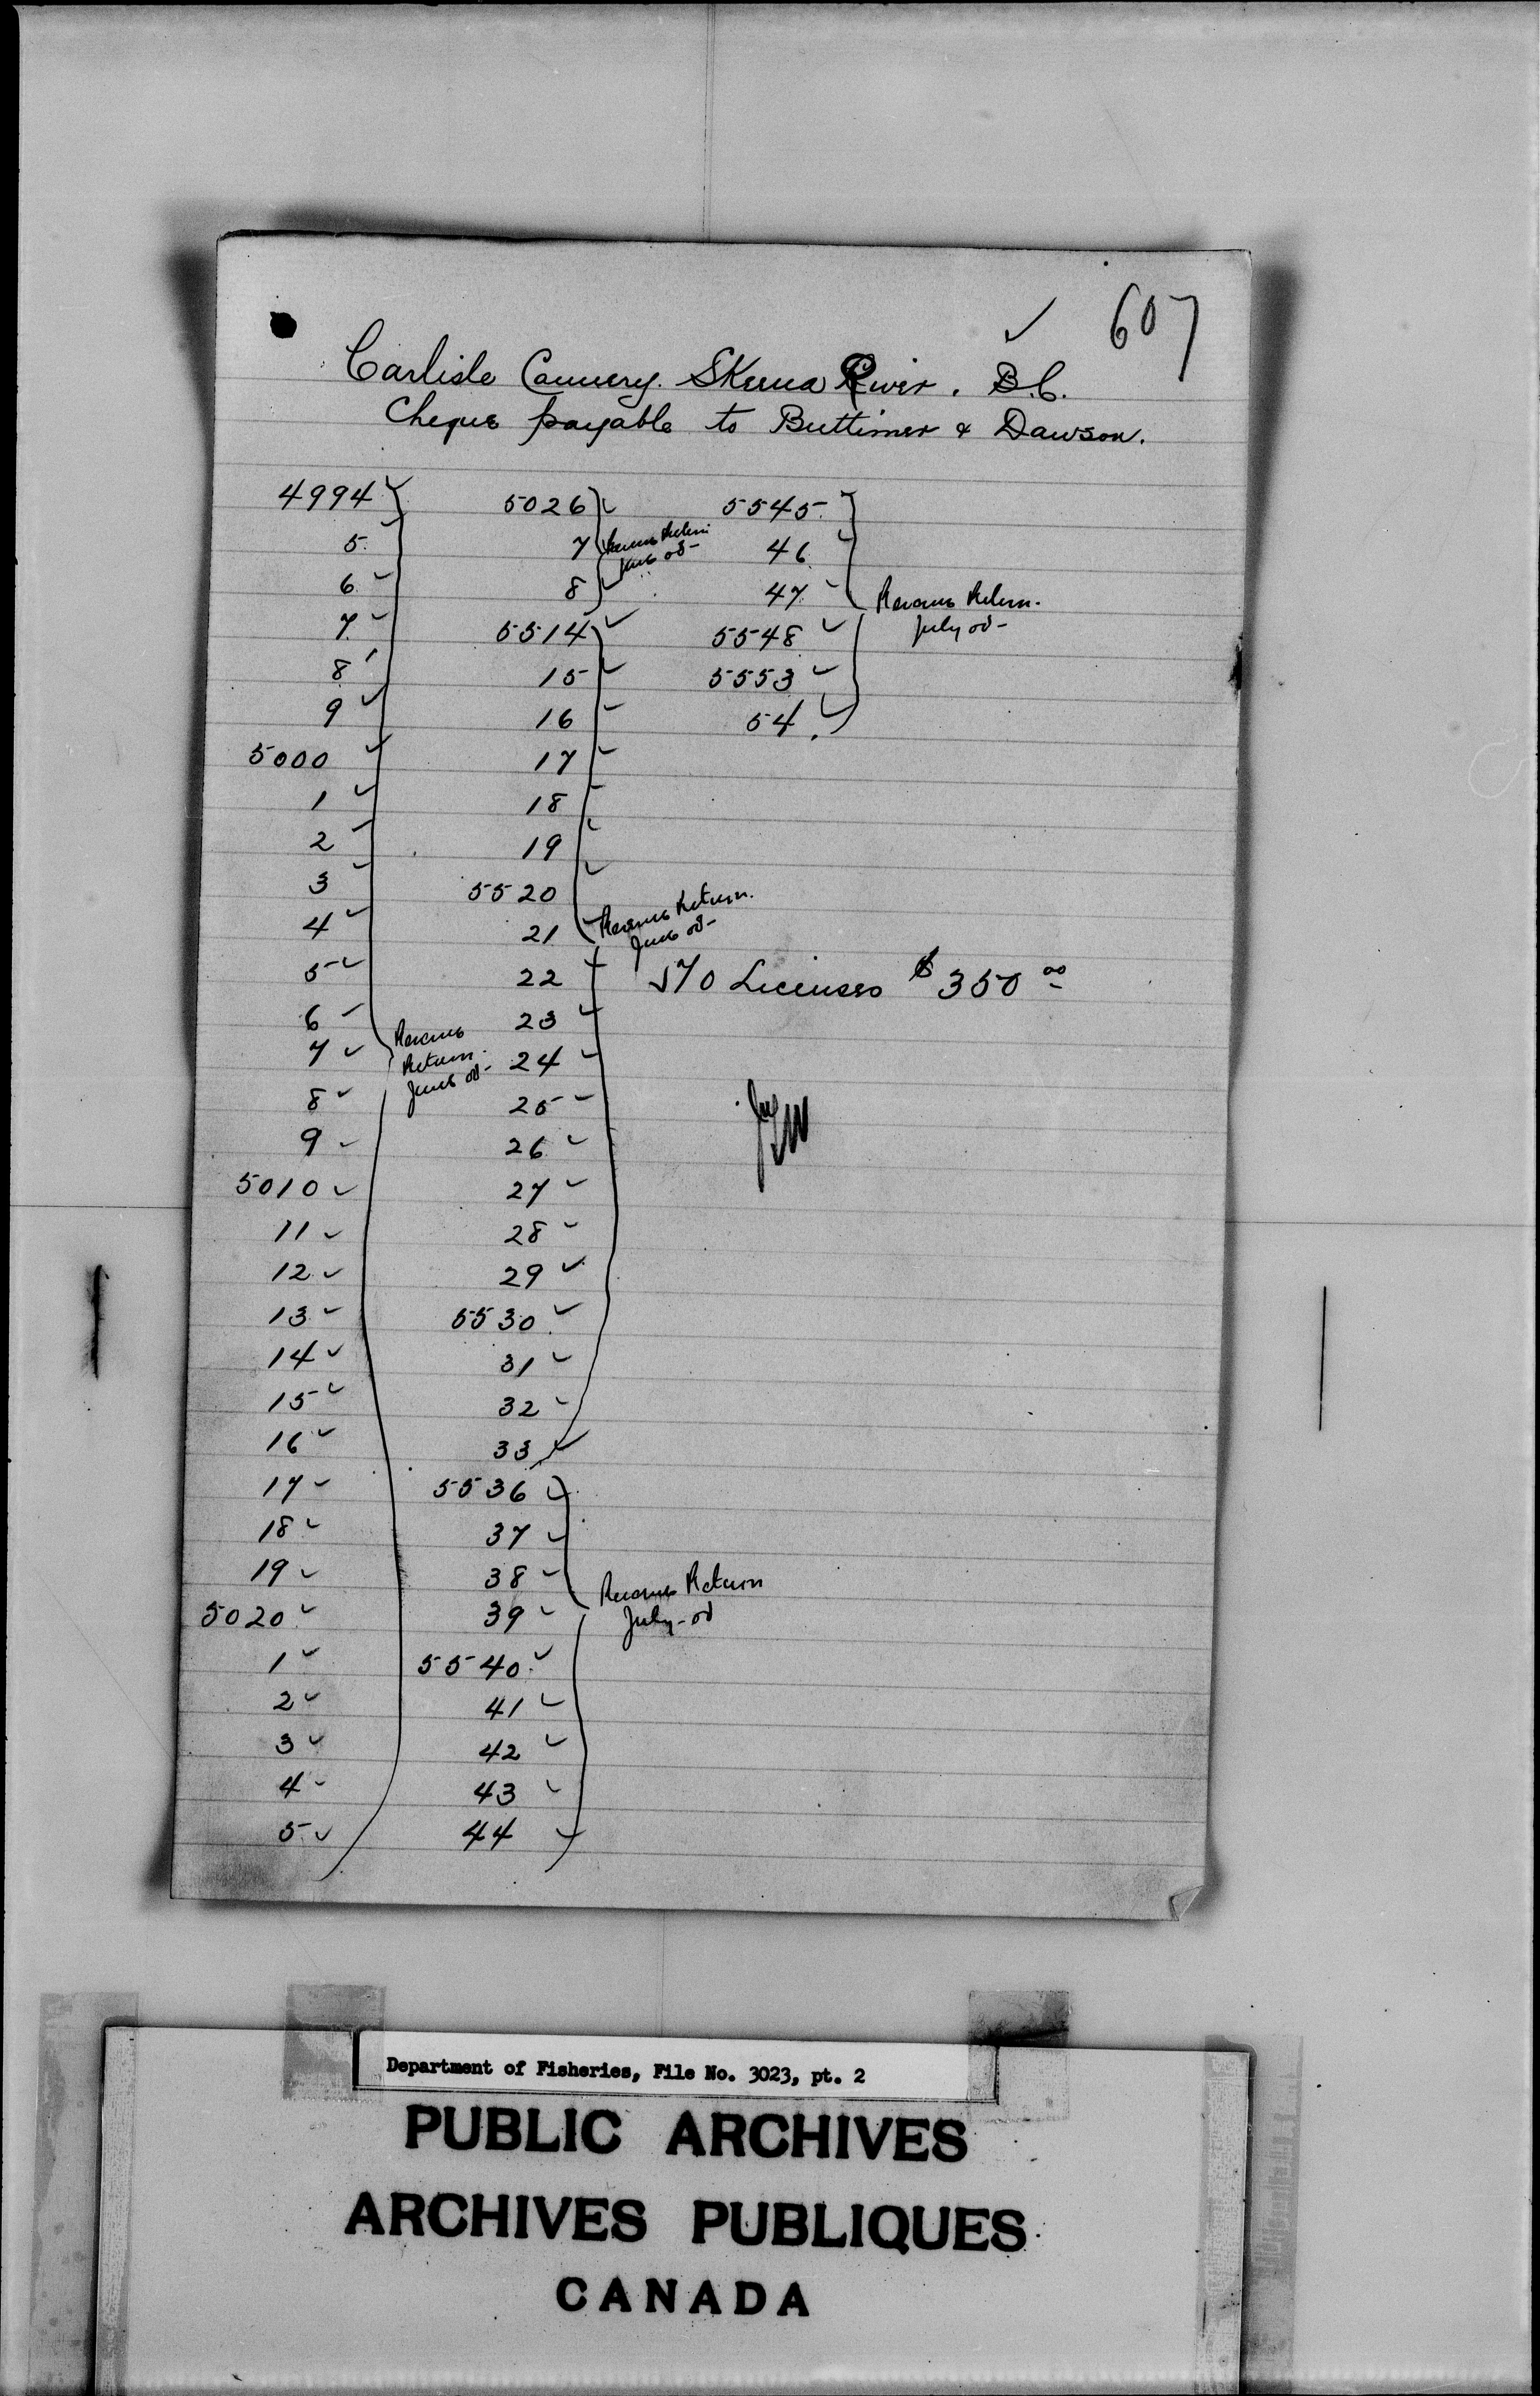 607
Carlisle Cannery. Skeena River. B.C.
Cheque payable to Buttimer & Dawson.
4994
5
6
7
8
9
5000
1
2
3
4
5
6
7
8
9
5010
11
12
13
14
15
16
17
18
19
5020
1
2
3
4
5
Revenue
Return
June 08
5026
7
8
Revenue Return
June 08
5514
15
16
17
18
19
5520
21
22
23
24
25
26
27
28
29
5530
31
32
33
Revenue Return.
June 08
5536
37
38
39
5540
41
42
43
44
Revenue Return
July 08
5545
46
47
5548
5553
54.
Revenue Return.
July 08
70 Licenses $350 00
Department of Fisheries, File No. 3023, pt. 2
PUBLIC ARCHIVES
ARCHIVES PUBLIQUES
CANADA